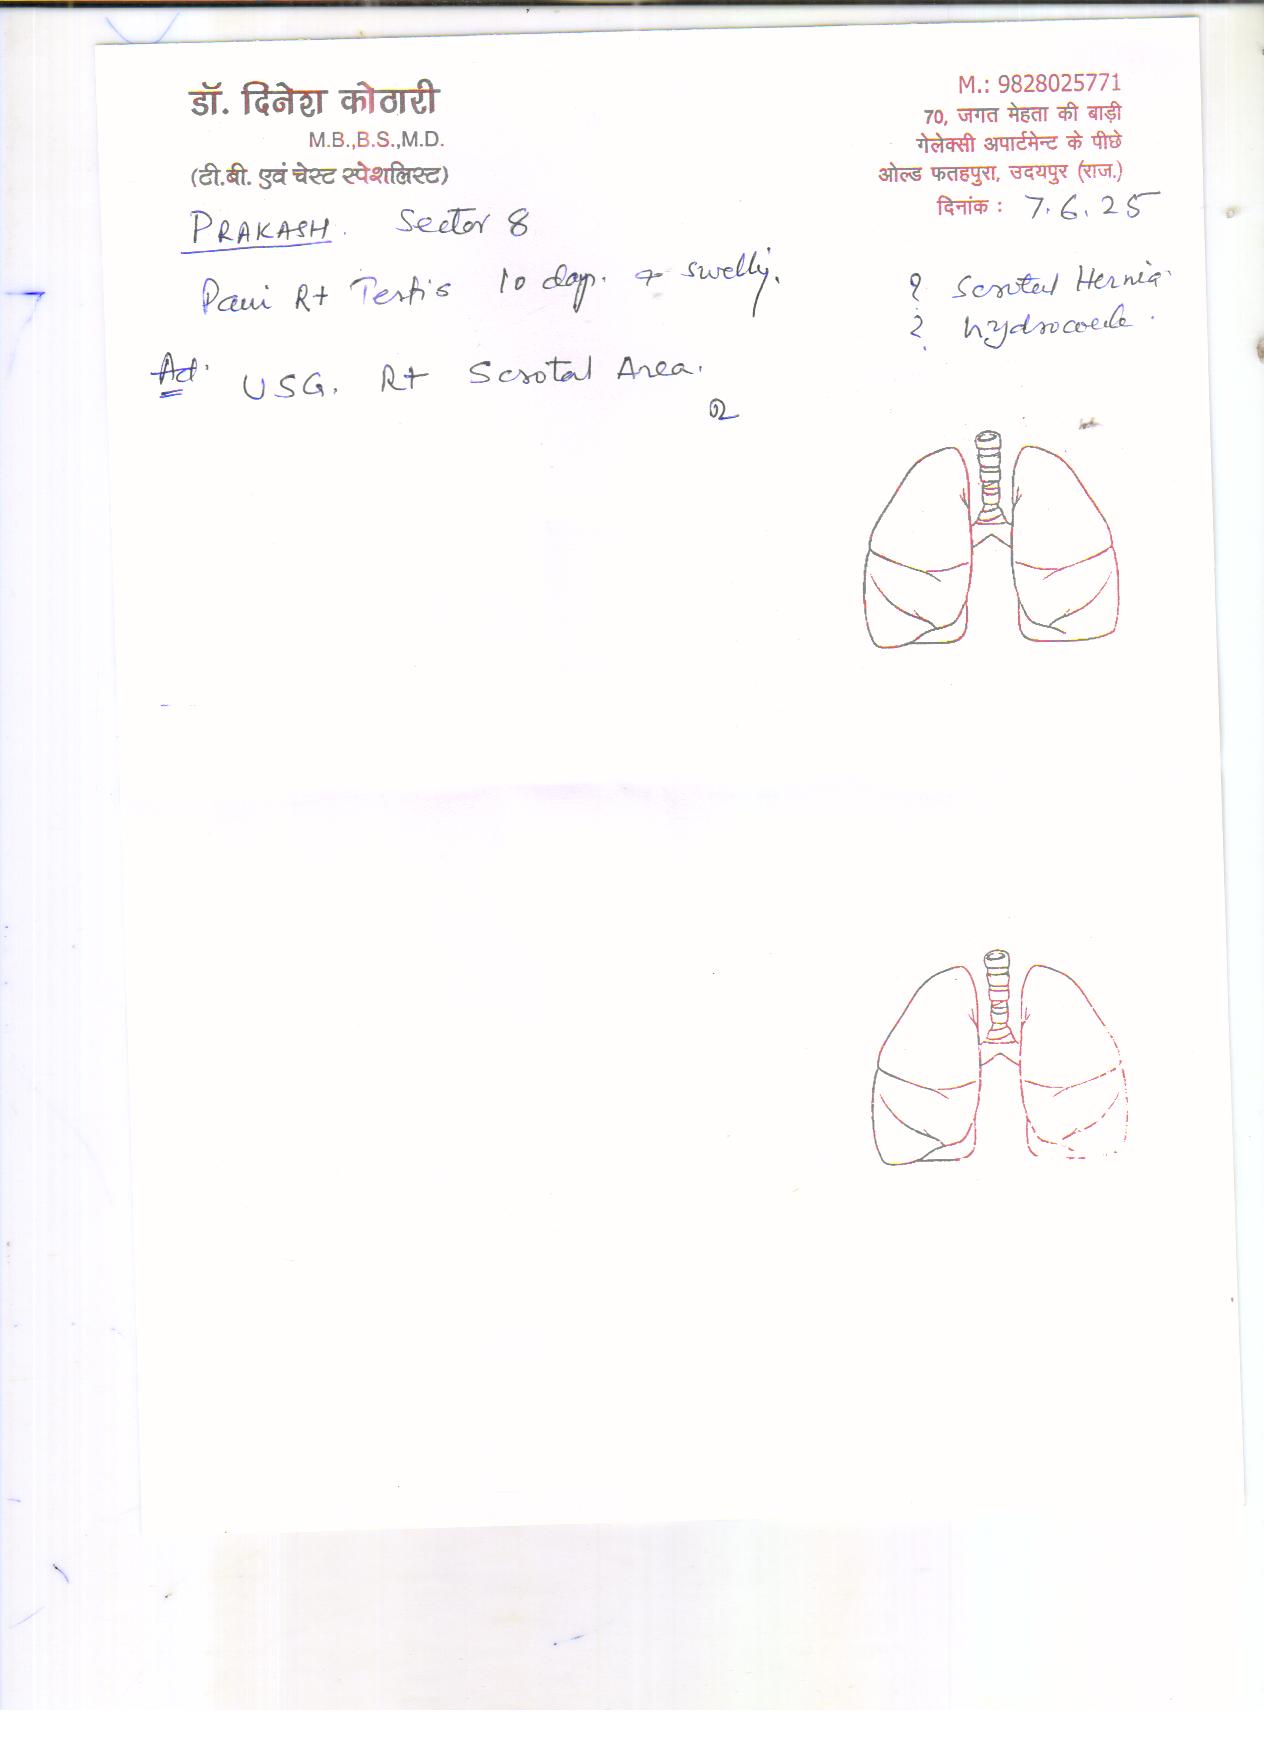 डॉ. दिनेश कोठारी
M.B.,B.S.,M.D.
(टी.बी. एवं चेस्ट स्पेशलिस्ट)
M.: 9828025771
70, जगत मेहता की बाड़ी
गेलेक्सी अपार्टमेन्ट के पीछे
ओल्ड फतहपुरा, उदयपुर (राज.)
दिनांक : 7.6.25
PRAKASH. Sector 8
Pain Rt Testis 10 days. + swelling.
? Scrotal Hernia.
? hydrocoele.
Ad. USG. Rt Scrotal Area.